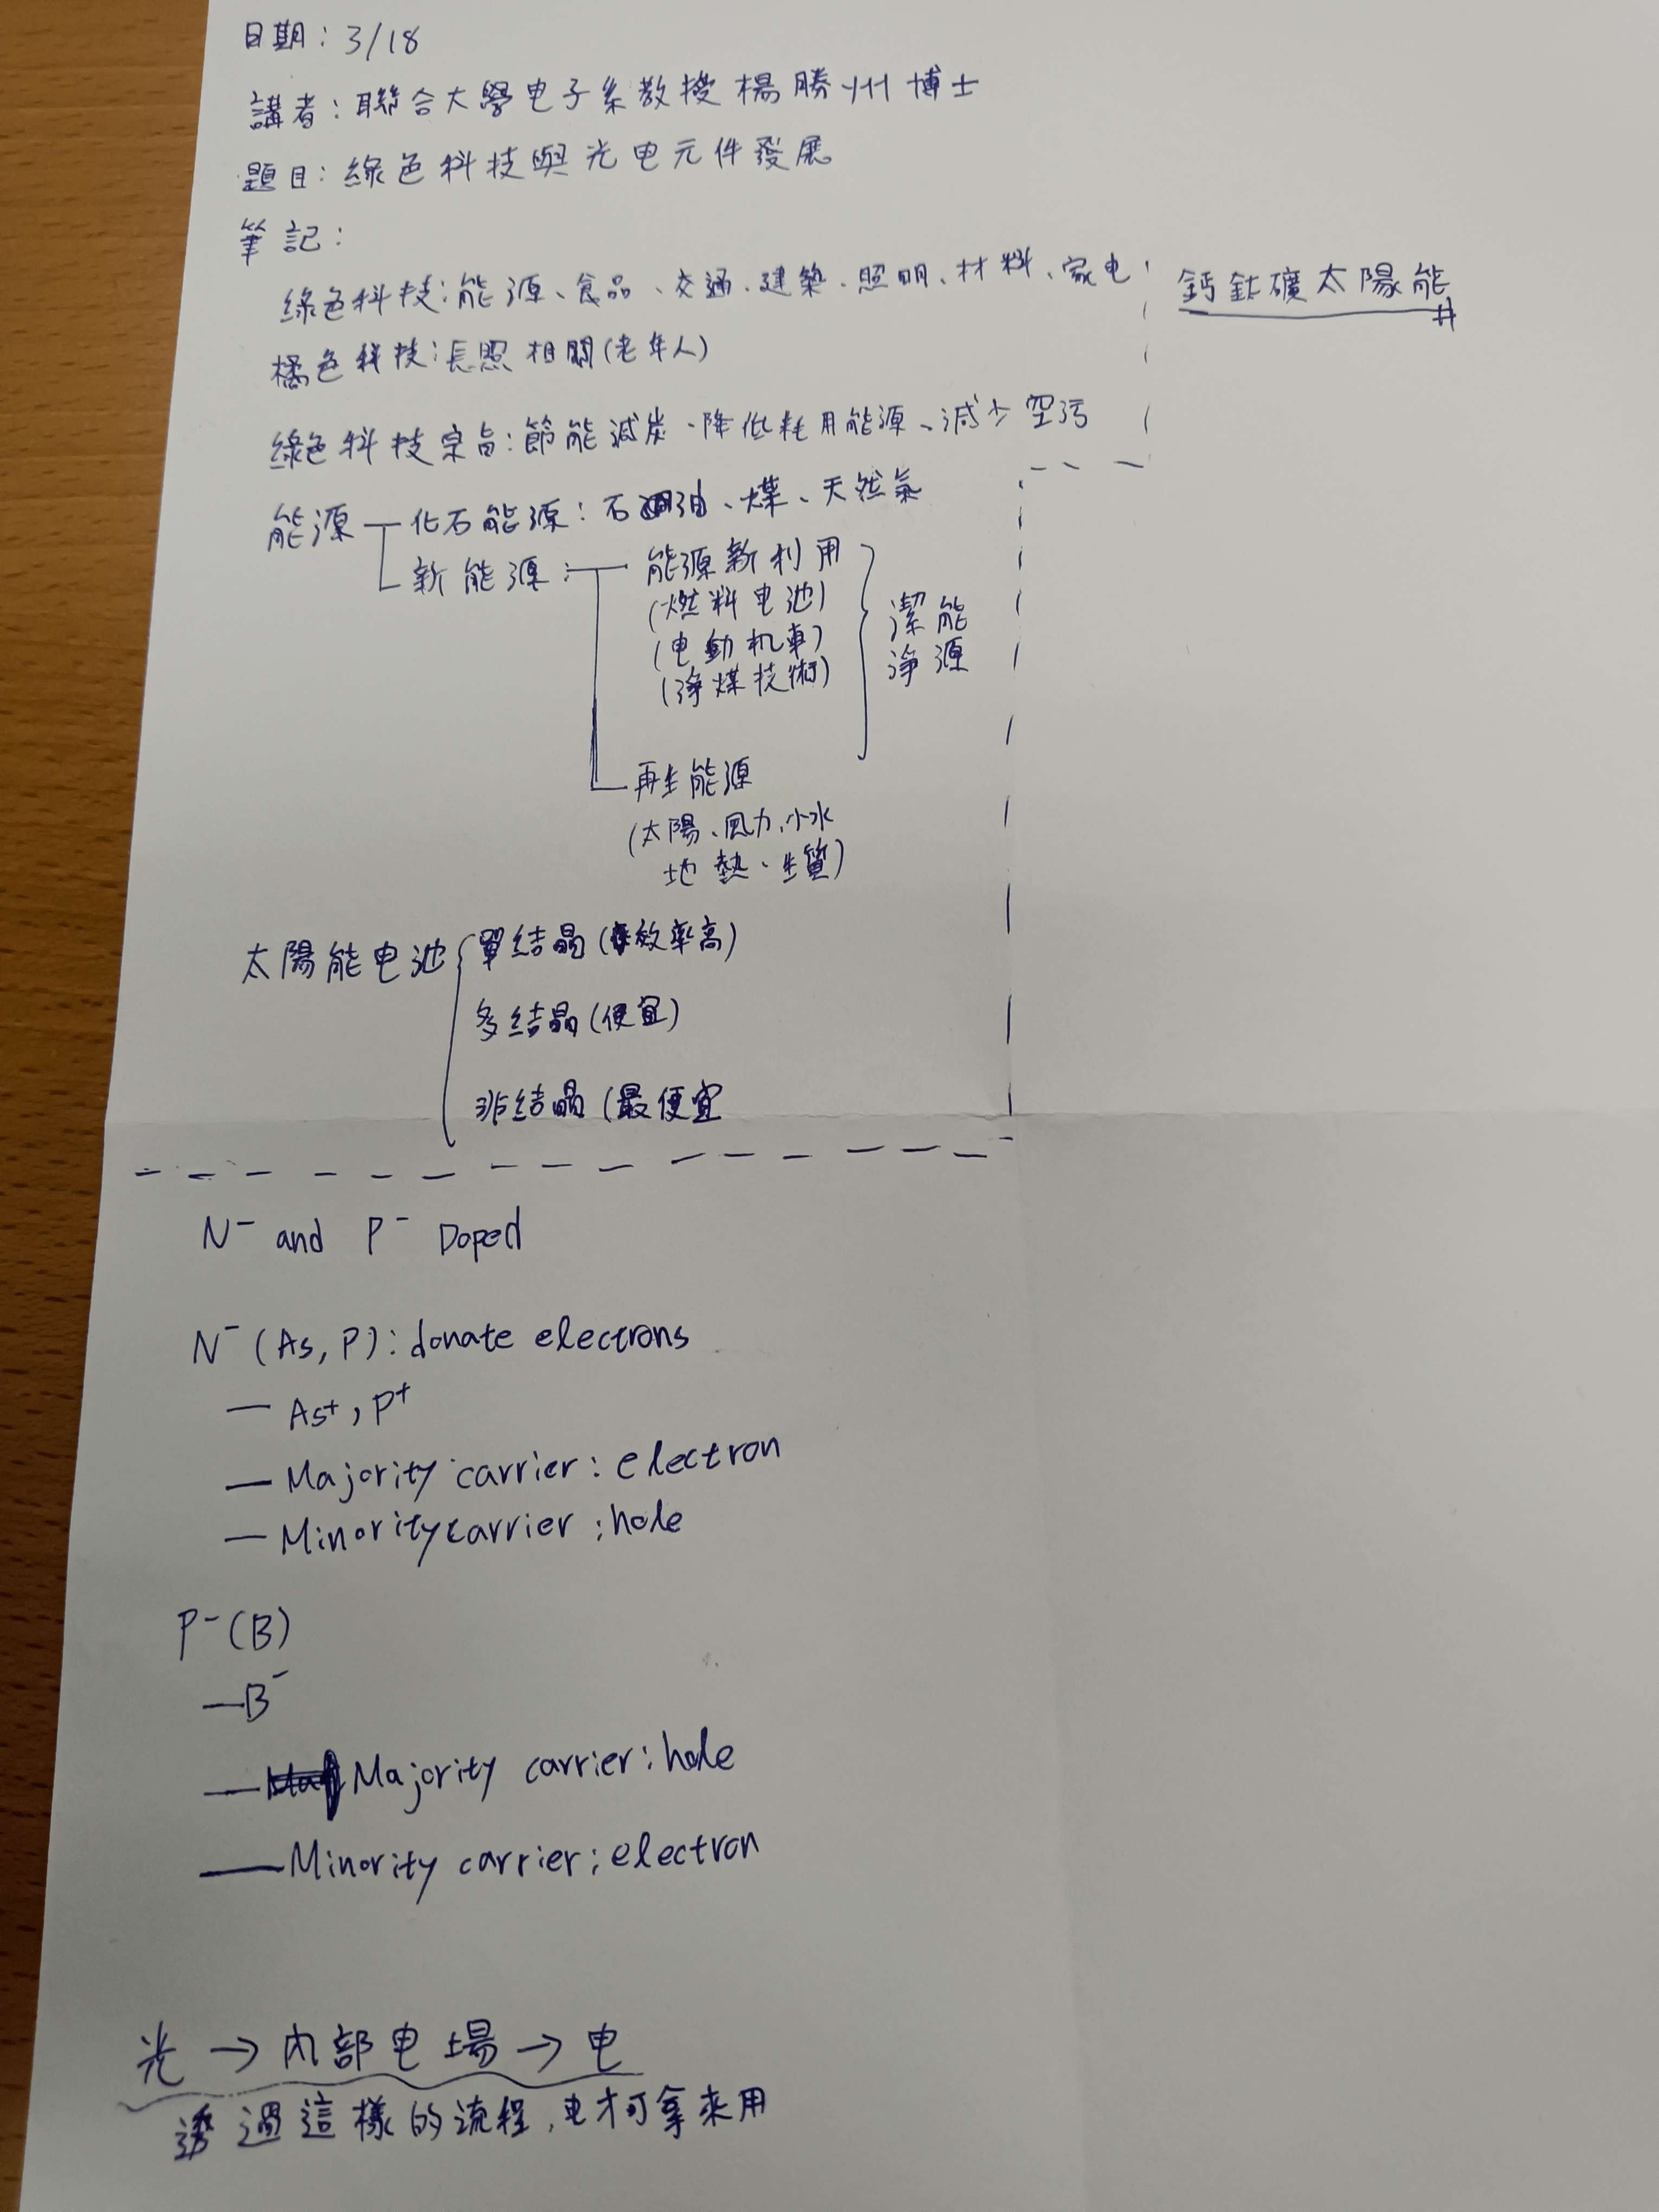 日期：3/18
講者：聯合大學电子系教授楊勝州博士
題目：綠色科技與光电元件發展
筆記：
綠色科技：能源、食品、交通、建築、照明、材料、家电
鈣鈦礦太陽能#
橘色科技：長照相關(老年人)
綠色科技宗旨：節能減炭、降低耗用能源、減少空污
能源 化石能源：石油、煤、天然氣
新能源： 能源新利用
(燃料电池)
(电動机車)
(淨煤技術)
潔能
淨源
再生能源
(太陽、風力、小水
地熱、生質)
太陽能电池 單結晶(效率高)
多結晶(便宜)
非結晶(最便宜
N⁻ and P⁻ Doped
N⁻(As, P): donate electrons
— As⁺, P⁺
— Majority carrier: electron
— Minority carrier: hole
P⁻(B)
— B⁻
— Majority carrier: hole
— Minority carrier: electron
光→內部电場→电
透過這樣的流程，电才可拿來用